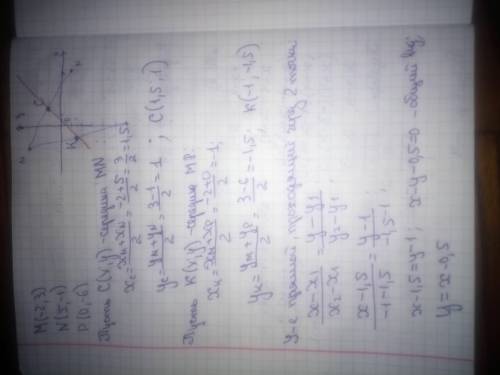 M(-2,3)
N(5,-1)
P(0,-6)
Пусть C(x,y) - середина MN:
x_C = (x_M + x_N)/2 = (-2+5)/2 = 3/2 = 1,5
y_C = (y_M + y_N)/2 = (3-1)/2 = 1 ; C(1,5; 1)
Пусть K(x,y) - середина MP:
x_K = (x_M + x_P)/2 = (-2+0)/2 = -1;
y_K = (y_M + y_P)/2 = (3-6)/2 = -1,5; K(-1, -1,5)
У-е прямой, проходящей через 2 точки
(x-x_1)/(x_2-x_1) = (y-y_1)/(y_2-y_1);
(x-1,5)/(-1-1,5) = (y-1)/(-1,5-1);
x-1,5=y-1; x-y-0,5=0 - общий вид;
y = x-0,5